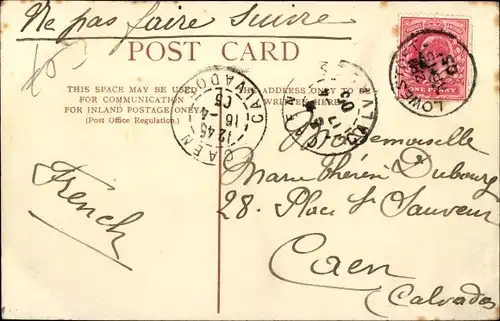 Ne pas faire suivre
POST CARD
THIS SPACE MAY BE USED
FOR COMMUNICATION
FOR INLAND POSTAGE ONLY
(Post Office Regulation.)
THE ADDRESS ONLY TO BE
WRITTEN HERE
CAEN CALVADOS
12 45
16 -4
05
LOWES
ONE PENNY
French
Mademoiselle
Marie Thérèse Dubourg
28. Place St Sauveur
Caen
Calvados